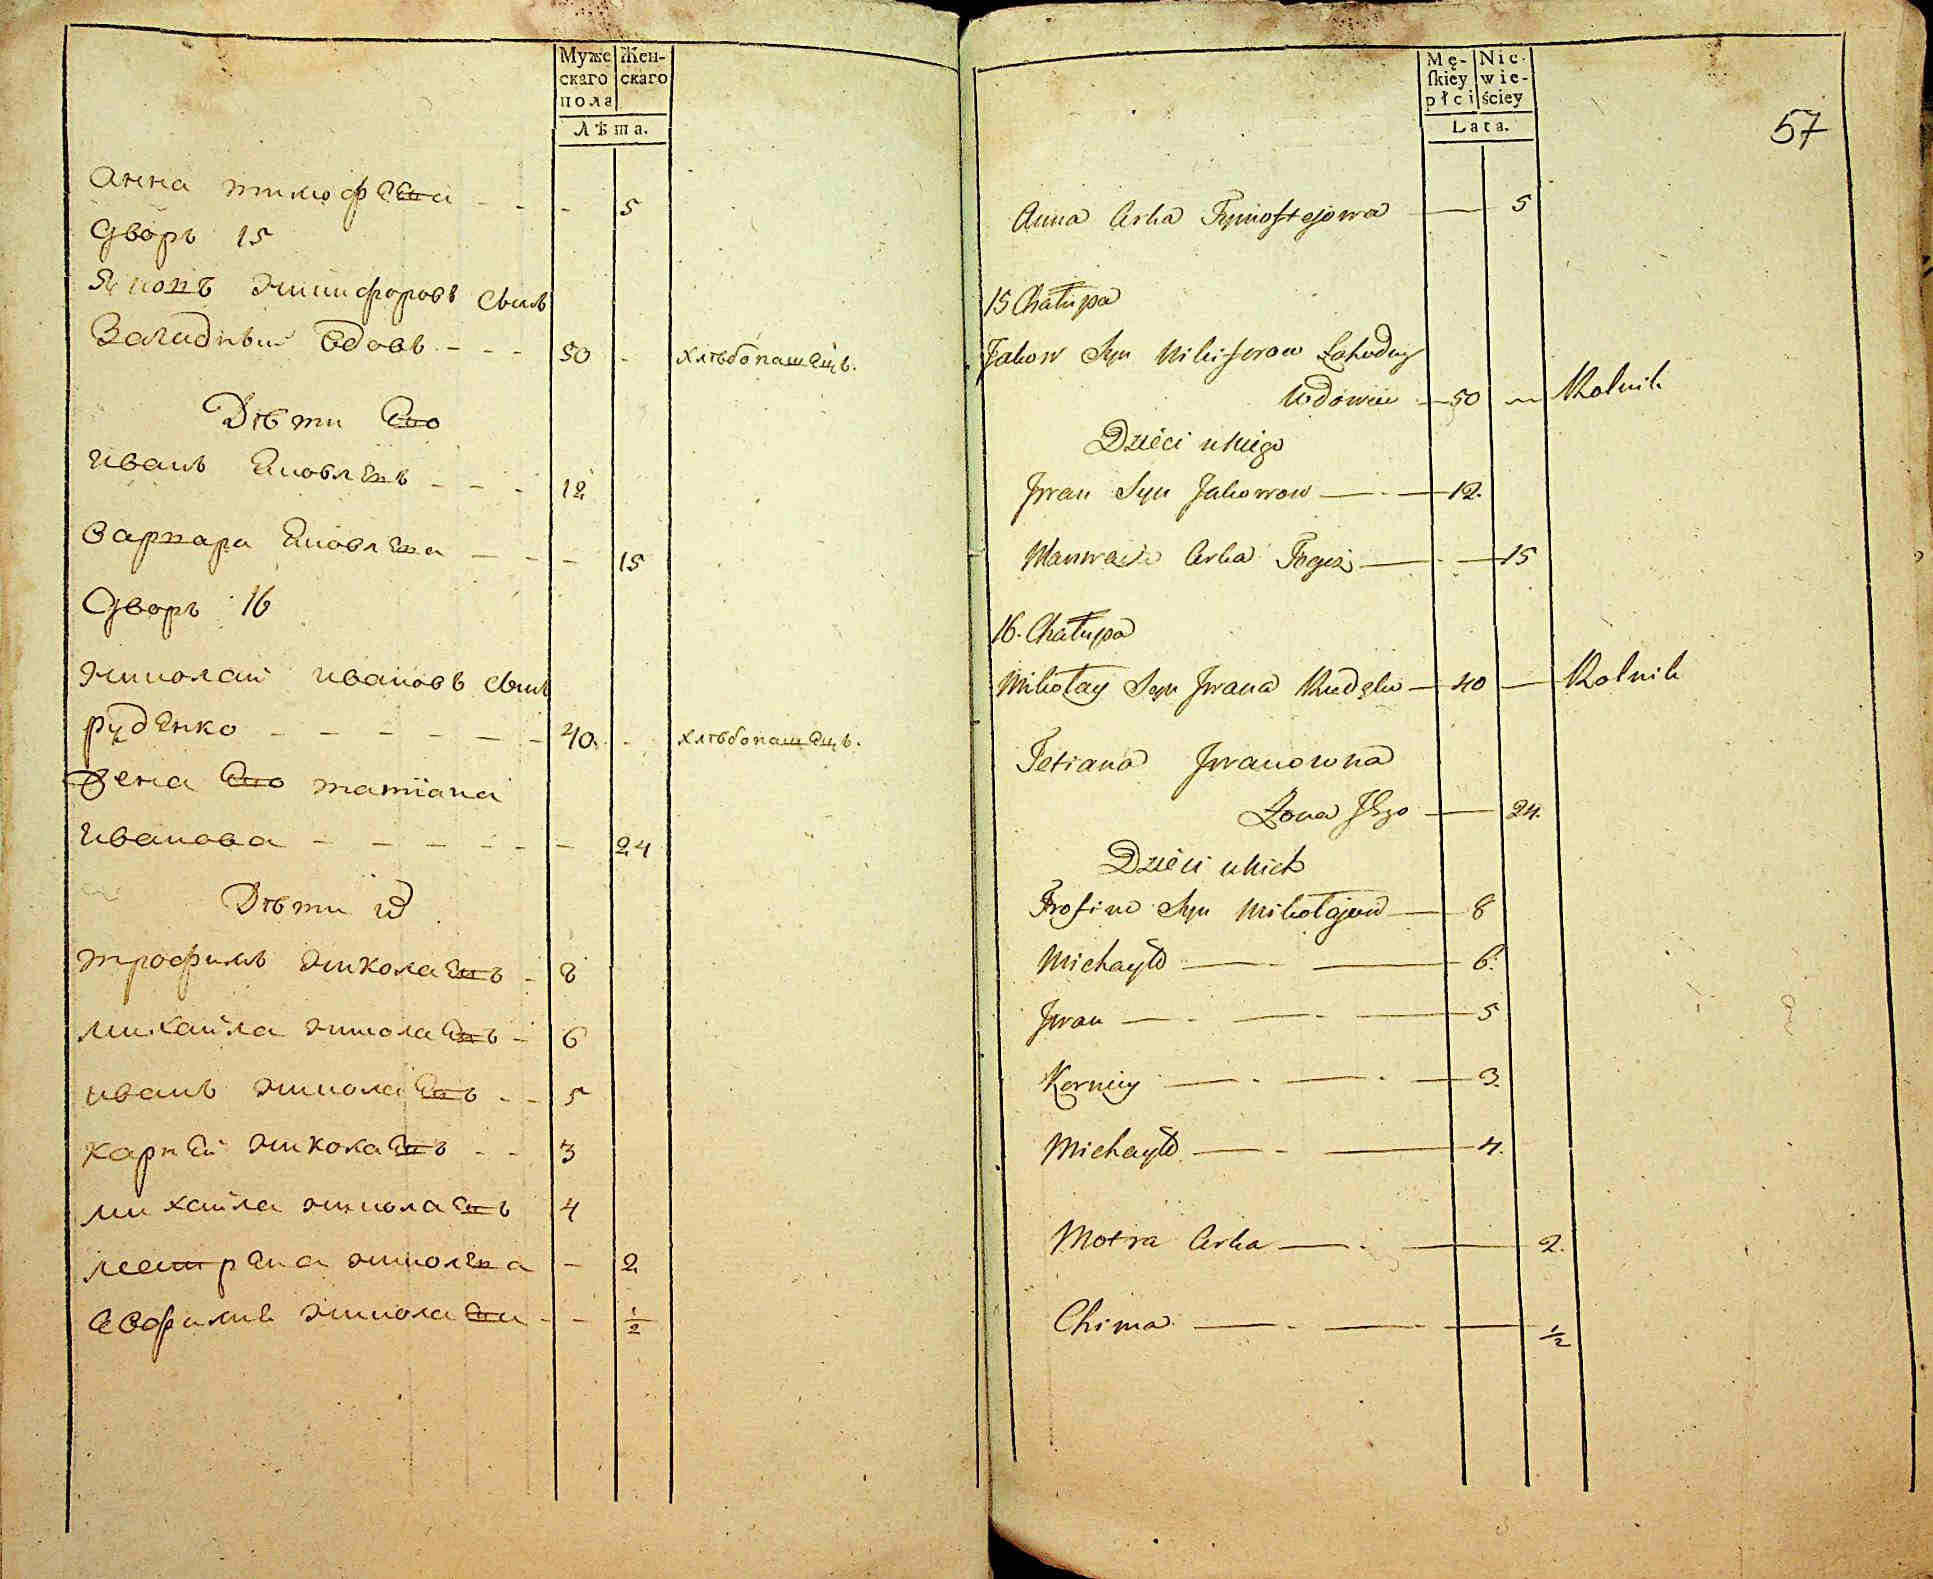 Муже
скаго
пола
Жен-
скаго
Лѣта.
Анна тимофеева - - - 5
Дворъ 15
Яковъ Никифоровъ сынъ
Загидный вдовъ - - - 50 - хлѣбопашецъ.
Дѣти Его
иванъ Яковлевъ - - - 12
варвара Яковлева - - - 15
Дворъ 16
Николай ивановъ сынъ
руденко - - - - - - 40 - хлѣбопашецъ.
жена Его татїана
иванова - - - - - - 24
Дѣти их
трофимъ Николаевъ - 8
михайла Николаевъ - 6
иванъ Николаевъ - - 5
карней Николаевъ - - 3
михайла Николаевъ 4
матрена Николаева - 2
Евфимиа Николаева - - 1/2
57
Mę-
ſkiey
płci
Nie-
wie-
ściey
Lata.
Anna Corka Tymofiejowa — 5
15 Chałupa
Jakow Syn Nikiforow Zahudny
Wdowiec — 50 — Rolnik
Dzieci u niego
Jwan Syn Jakowow — 12.
Warwara Corka Tegoż — 15
16. Chałupa
Mikołay Syn Jwana Rudęko — 40 — Rolnik
Tetiana Jwanowna
Żona Jego — 24.
Dzieci u nich
Trofim Syn Mikołajow — 8
Michayło — 6.
Jwan — 5
Kerniey — 3.
Michayło — 4.
Motra Corka — 2.
Chima — 1/2